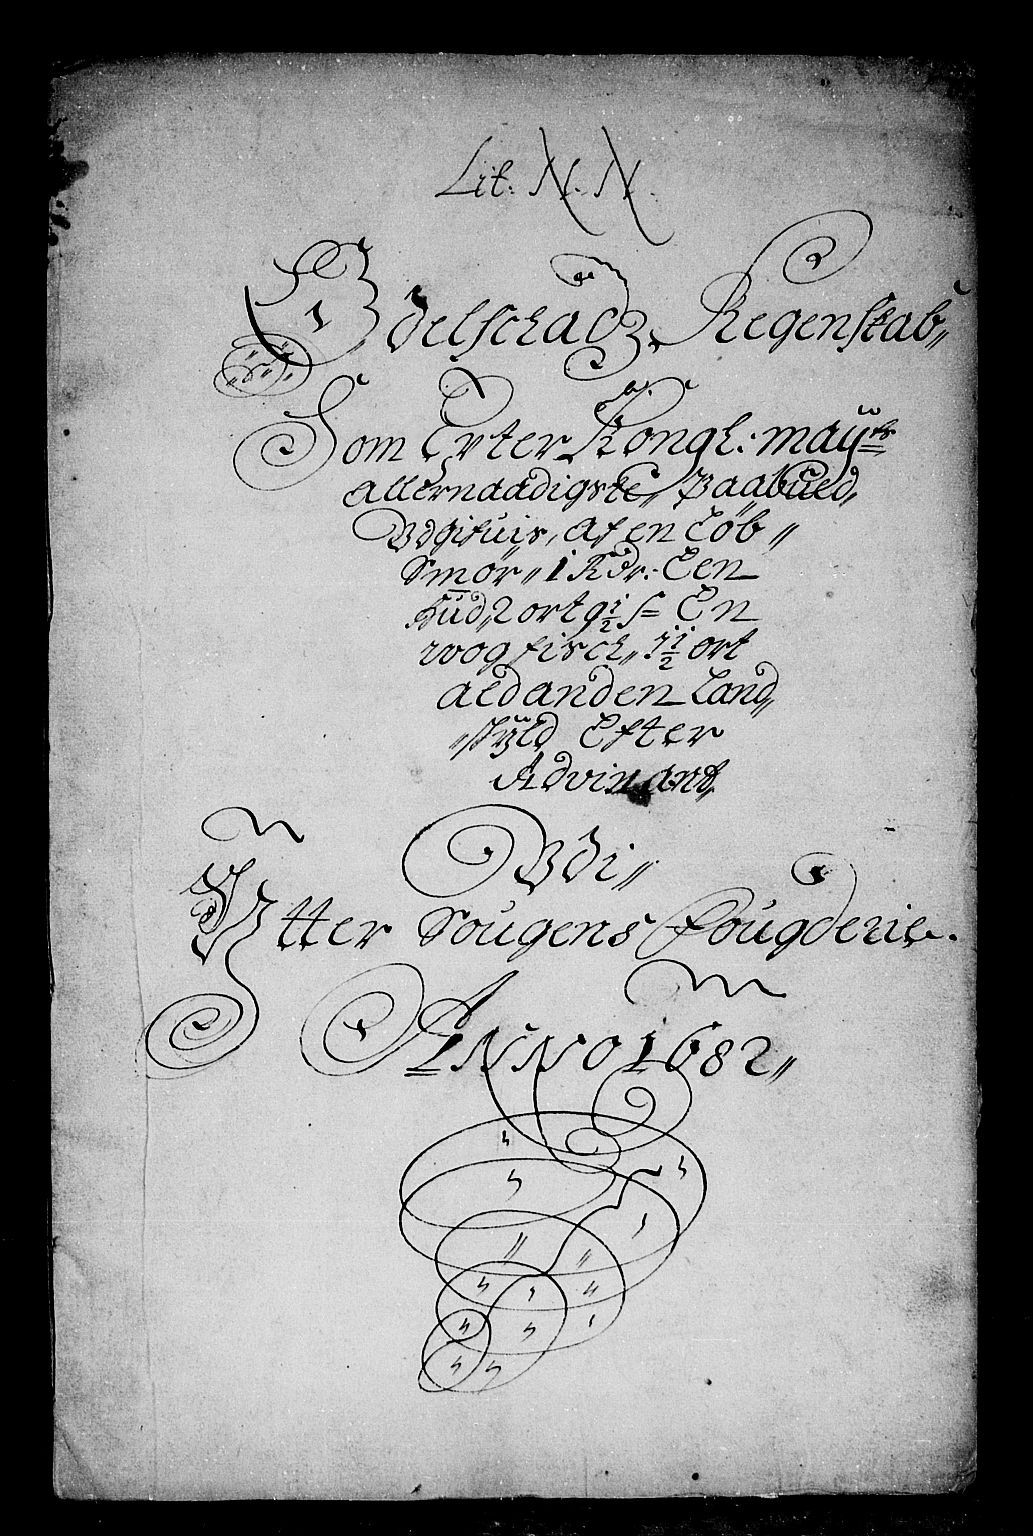 Lit: N. N.
Odelschatz Regenskab„
Som Epter Kongl: mayts
allernaadigste, Paabued,
Udgifuis, af en Løb„
Smør„ 1 Rdr: Een
Hud, 2 ort 9½ s= En
woog fisch, 1½ ort
aldanden Land„
„skÿld Efter
Advinant,
Udi„
Ÿtter Sougens Fougderie.
ANNO 1682„